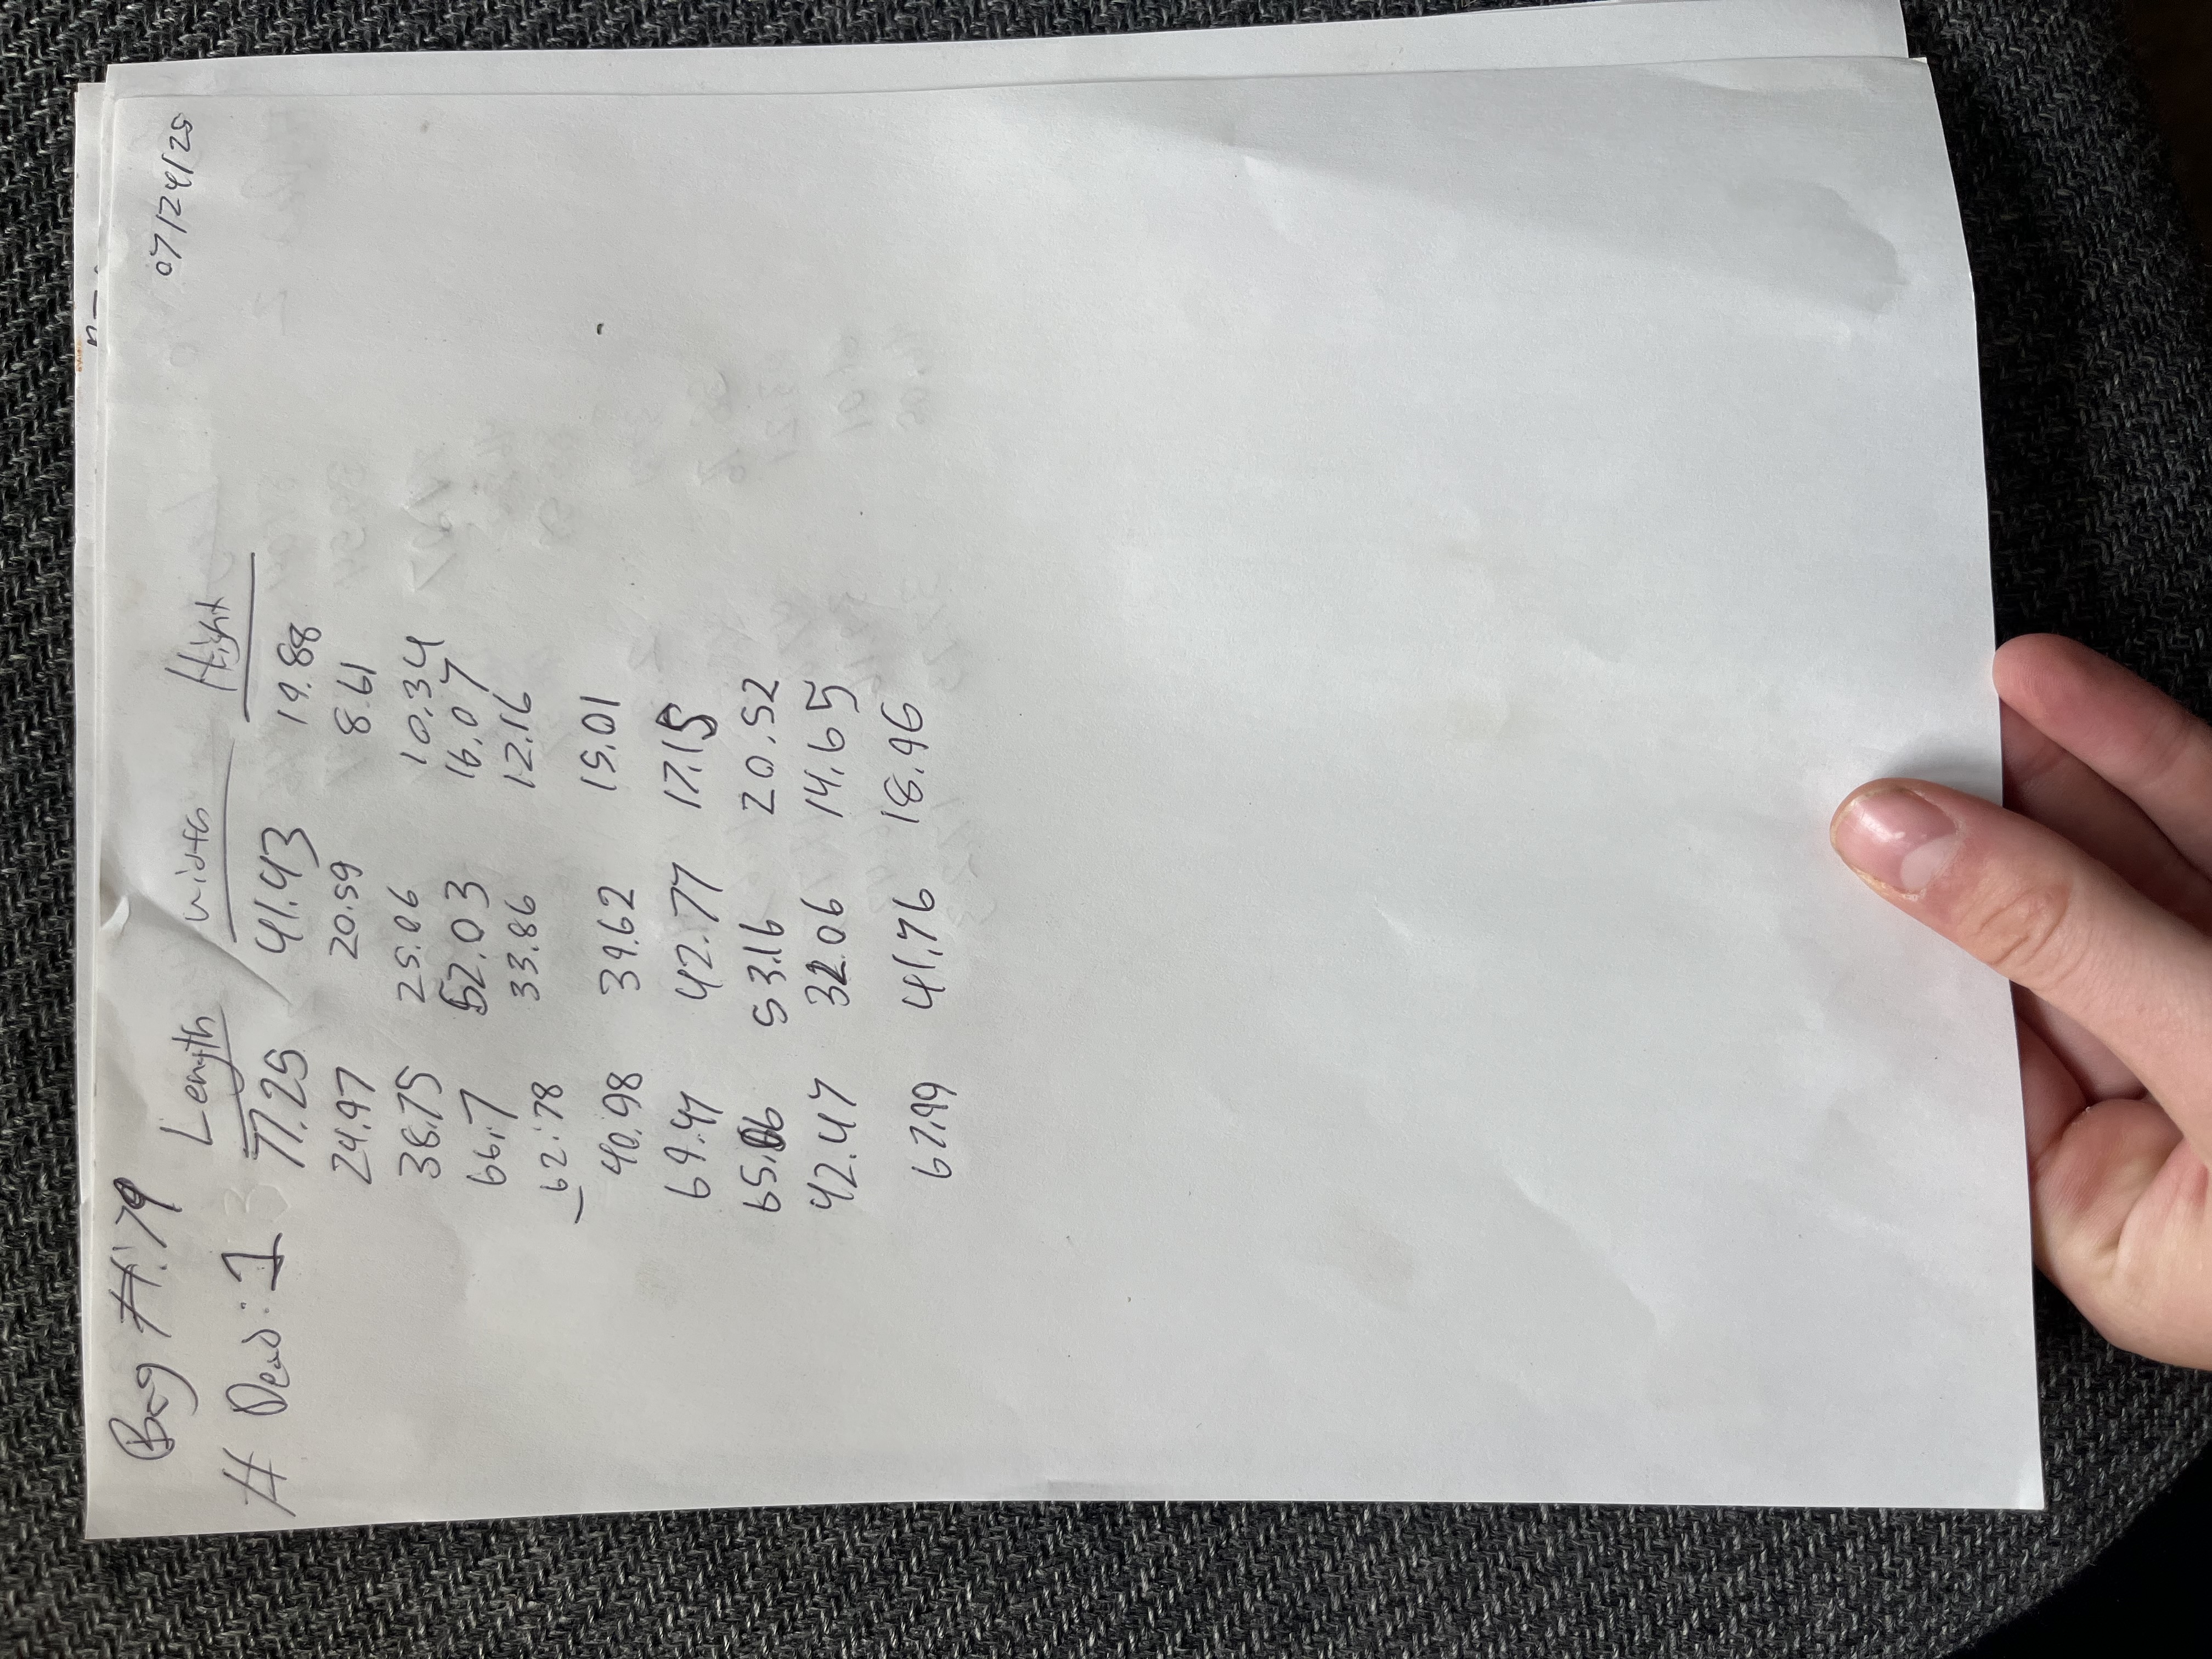 Bag #: 79
07/24/25
Length Width Hight
# Dead: 1
77.25 41.43 19.88
24.97 20.59 8.61
38.75 25.06 10.34
66.7 52.03 16.07
62.78 33.86 12.16
40.98 39.62 15.01
69.47 42.77 17.15
65.06 53.16 20.52
42.47 32.06 14.65
67.99 41.76 18.96